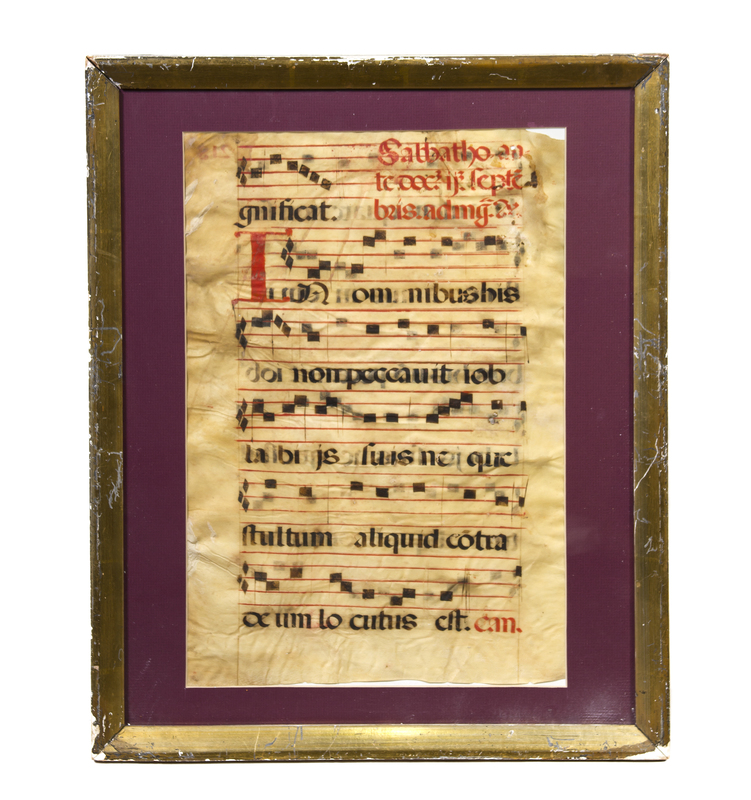 Sabbatho an-
te doc. ij. septẽ
gnificat. bris. ad mg̃.
In om nibus his
non peccauit iob
labijs suis neque
stultum aliquid cõtra
deum lo cutus est.